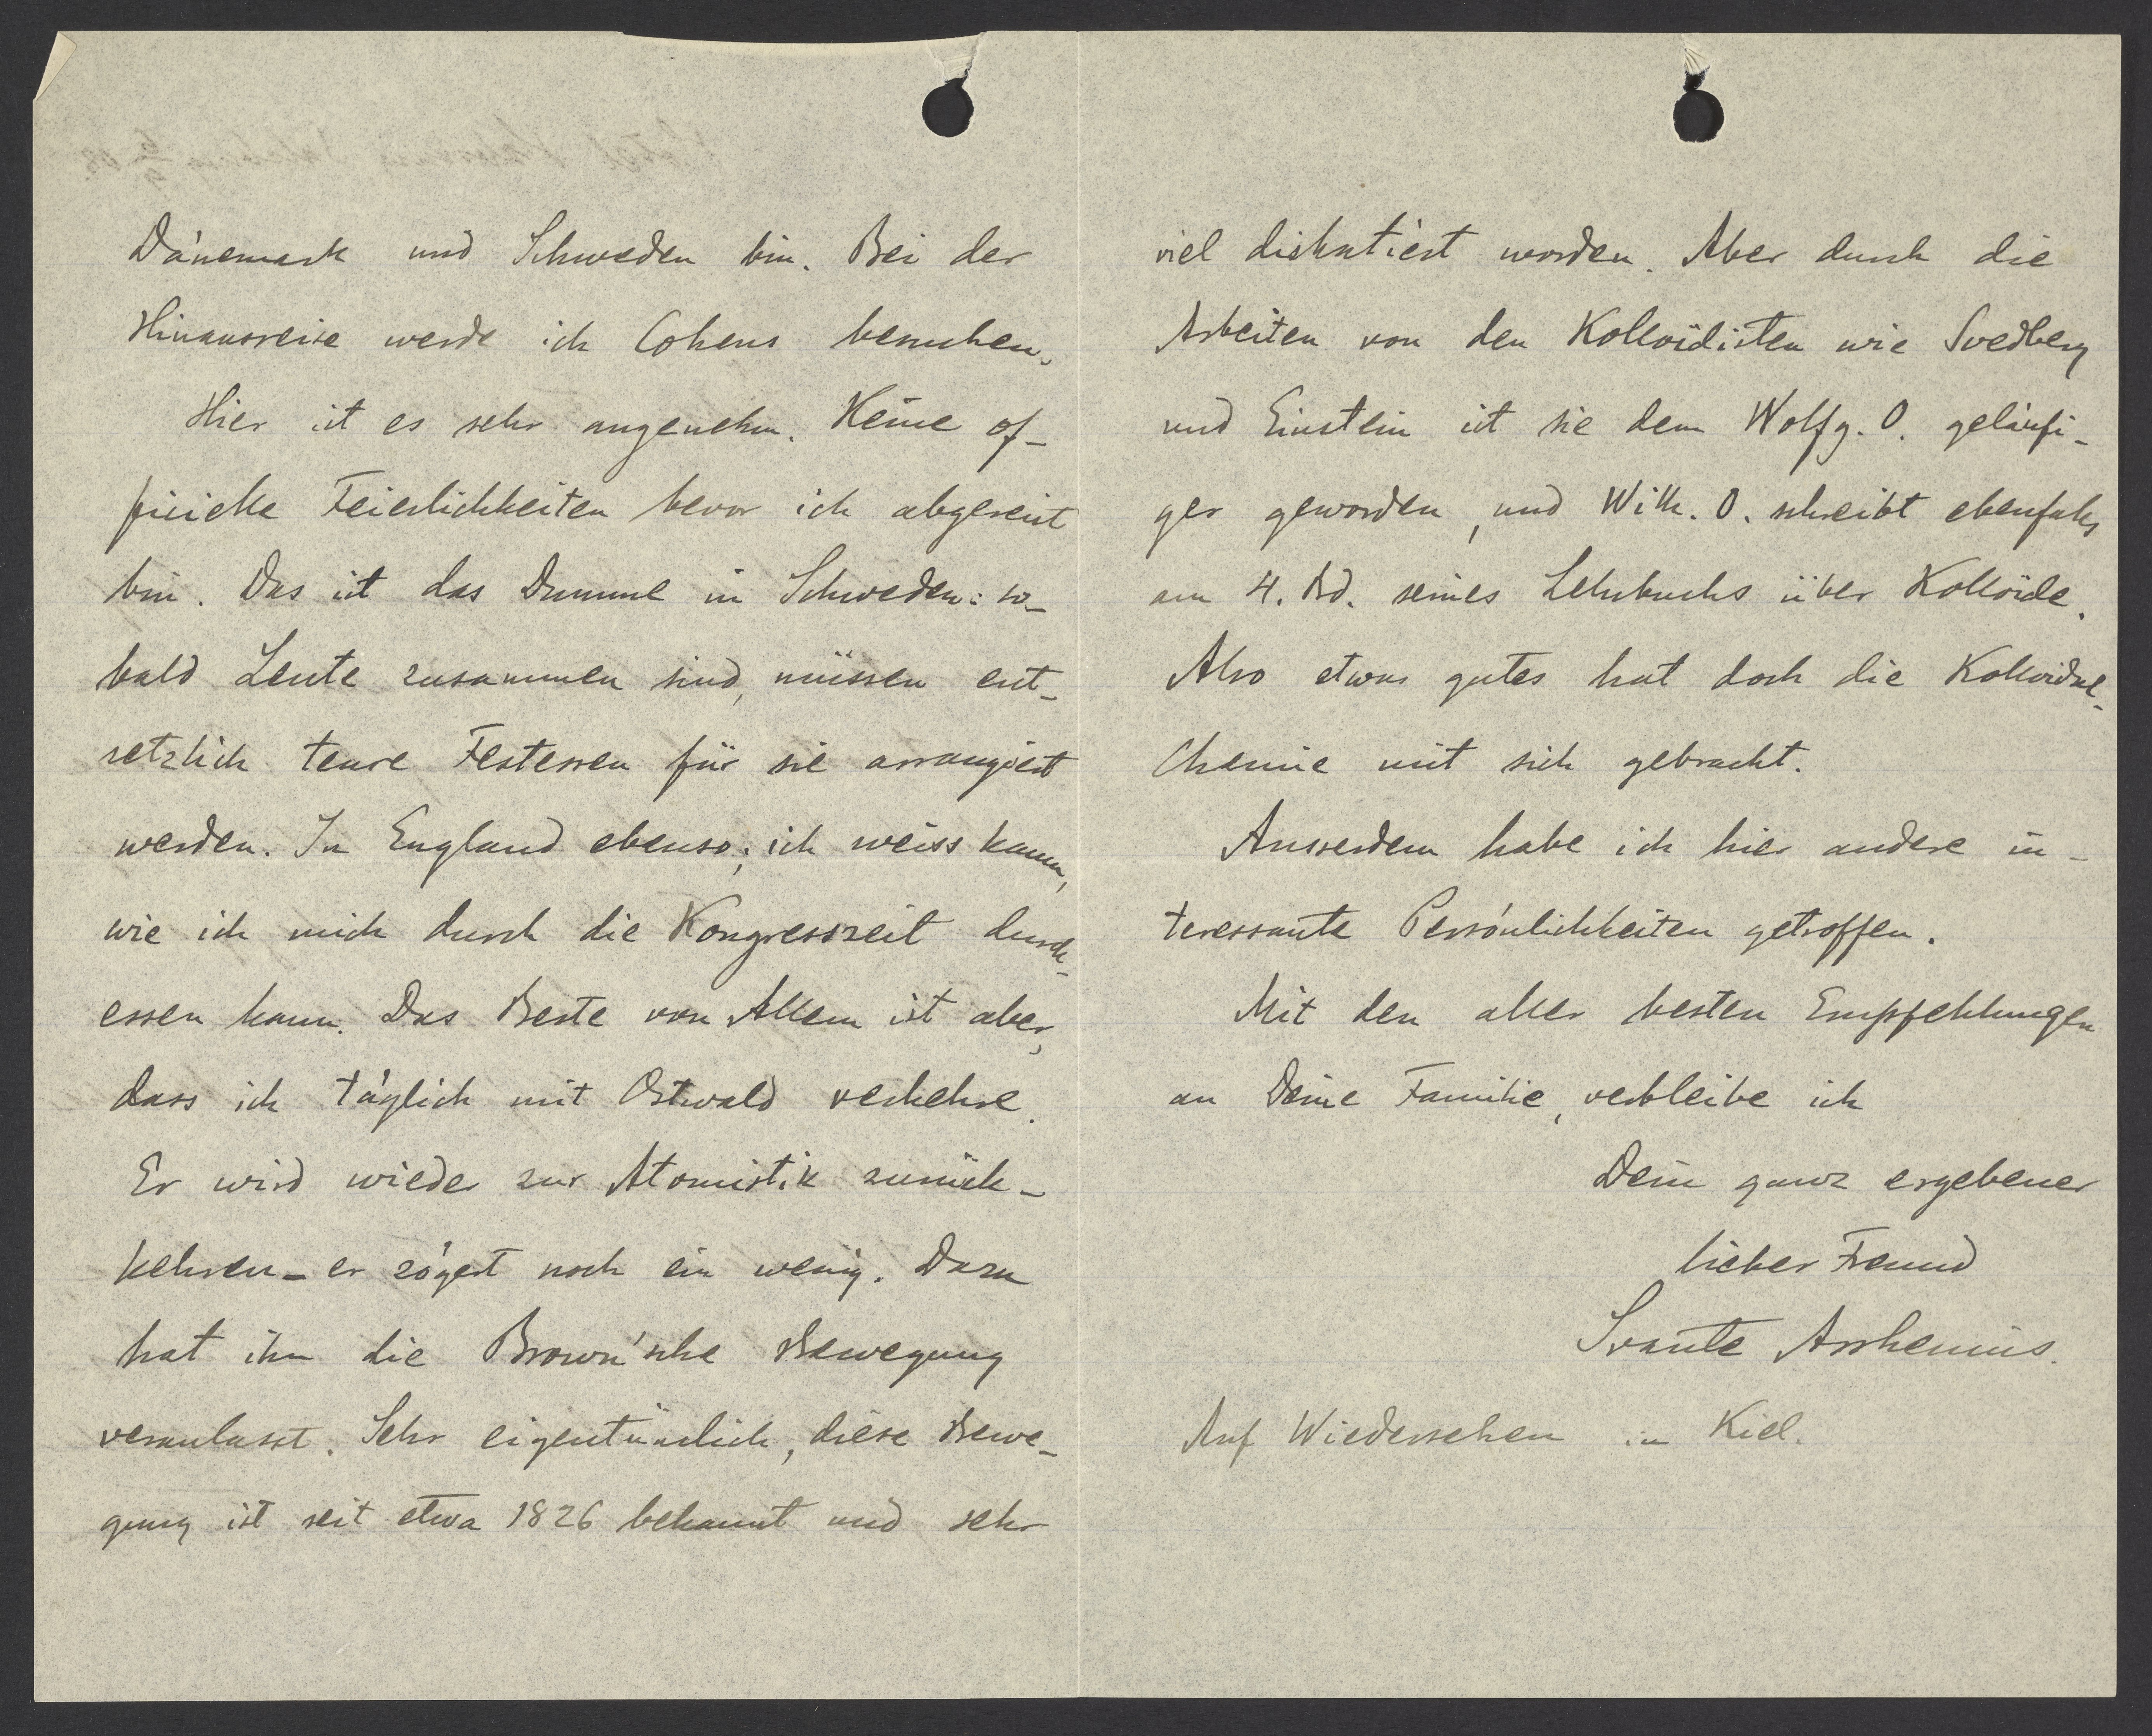 Dänemark und Schweden bin. Bei der
Hinausreise werde ich Cohens besuchen.
Hier ist es sehr angenehm. Keine of-
ficielle Feierlichkeiten bevor ich abgereist
bin. Das ist das Dumme in Schweden: so-
bald Leute zusammen sind, müssen ent-
setzlich teure Festessen für sie arrangiert
werden. In England ebenso; ich weiss kaum,
wie ich mich durch die Kongresszeit durch-
essen kann. Das Beste von Allem ist aber,
dass ich täglich mit Ostwald verkehre.
Er wird wieder zur Atomistik zurück-
kehren - er zögert noch ein wenig. Dazu
hat ihn die Brown'sche Bewegung
veranlasst. Sehr eigentümlich, diese Bewe-
gung ist seit etwa 1826 bekannt und sehr
viel diskutiert worden. Aber durch die
Arbeiten von den Kolloidisten wie Svedberg
und Einstein ist sie dem Wolfg. O. geläufi-
ger geworden, und Wilh. O. schreibt ebenfalls
am 4. Bd. seines Lehrbuchs über Kolloide.
Also etwas gutes hat doch die Kolloidal-
Chemie mit sich gebracht.
Ausserdem habe ich hier andere in-
teressante Persönlichkeiten getroffen.
Mit den aller besten Empfehlungen
an Deine Familie, verbleibe ich
Dein ganz ergebener
lieber Freund
Svante Arrhenius.
Auf Wiedersehen in Kiel.